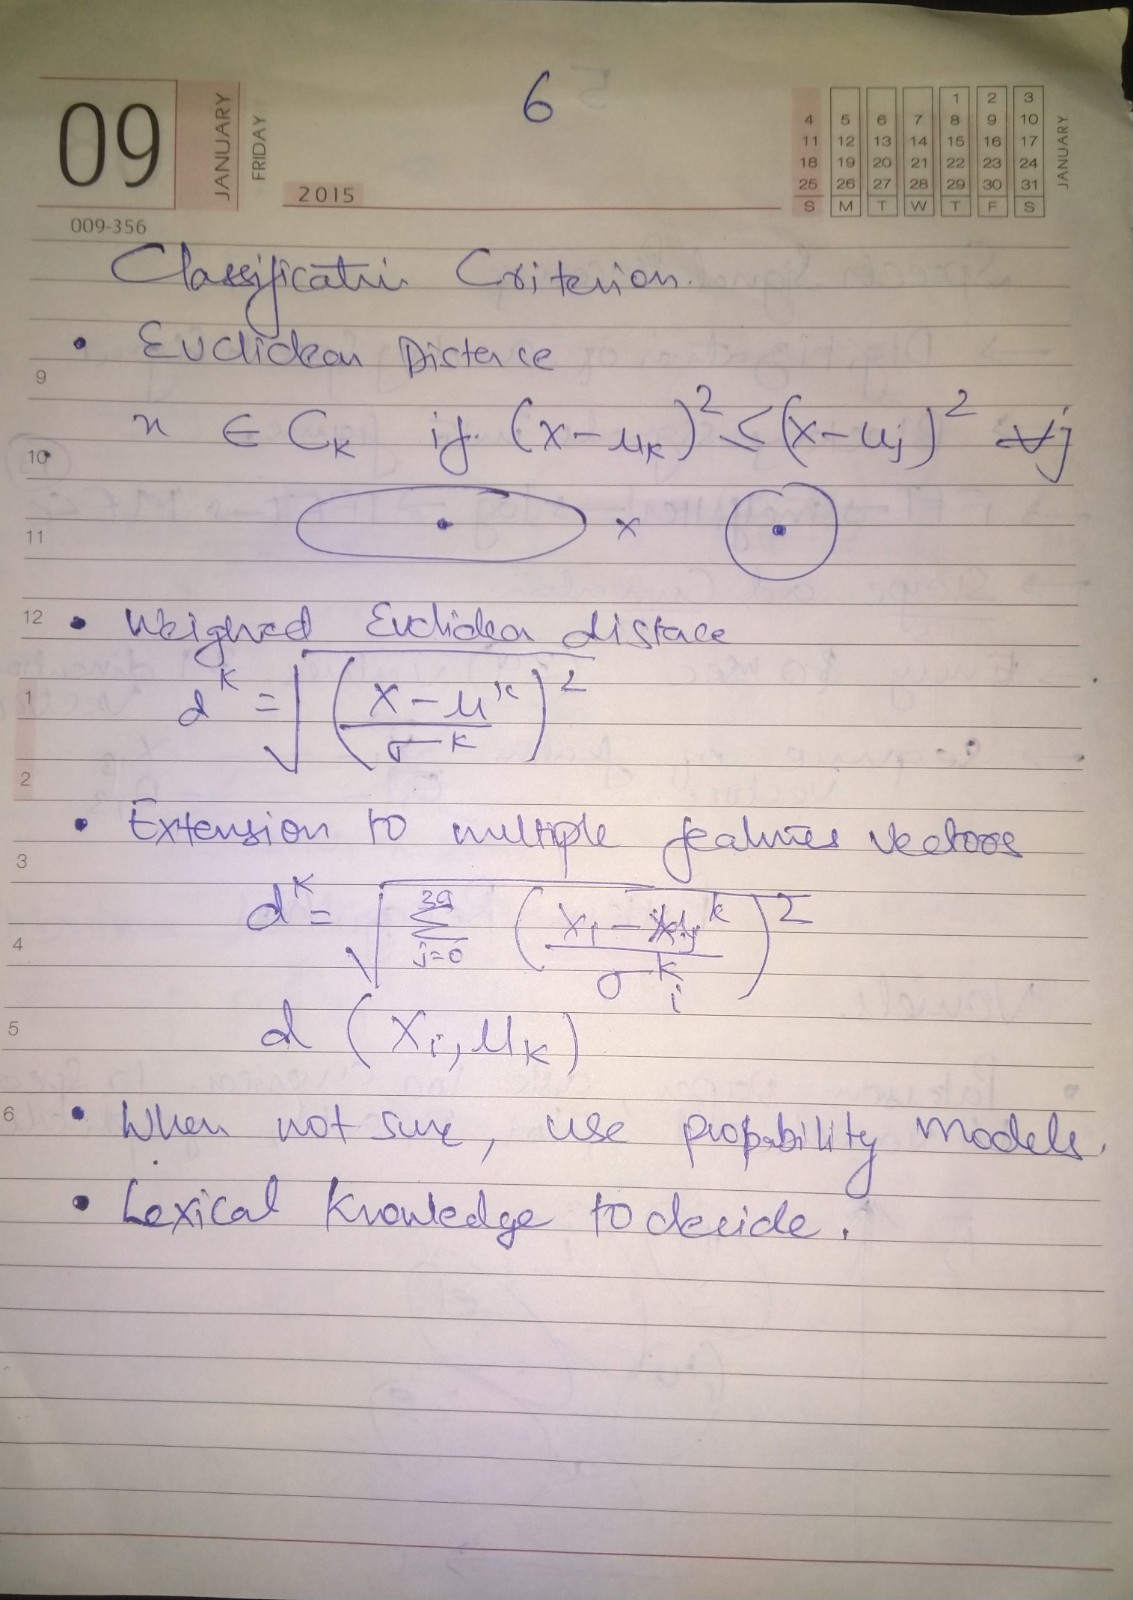 6
09
JANUARY
FRIDAY
2015
009-356
1 2 3
4 5 6 7 8 9 10
11 12 13 14 15 16 17
18 19 20 21 22 23 24
25 26 27 28 29 30 31
S M T W T F S
JANUARY
Classification Criterion.
• Euclidean Distence
9
x ∈ C_k if (x-μ_k)^2 ≤ (x-μ_j)^2 ∀j
10
11
x
12
• Weighed Euclidean distace
1
d^k = √((x-μ^k)/σ^k)^2
2
• Extension to multiple features vectors
3
d^k = √Σ_{j=0}^{39} ((x_i - μ_j^k)/σ_i^k)^2
4
d (x_i, μ_k)
5
6
• When not sure, use probability models.
• Lexical Knowledge to decide.